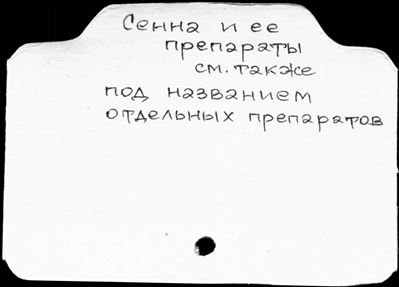 Сенна и ее
препараты
см. также
под названием
отдельных препаратов